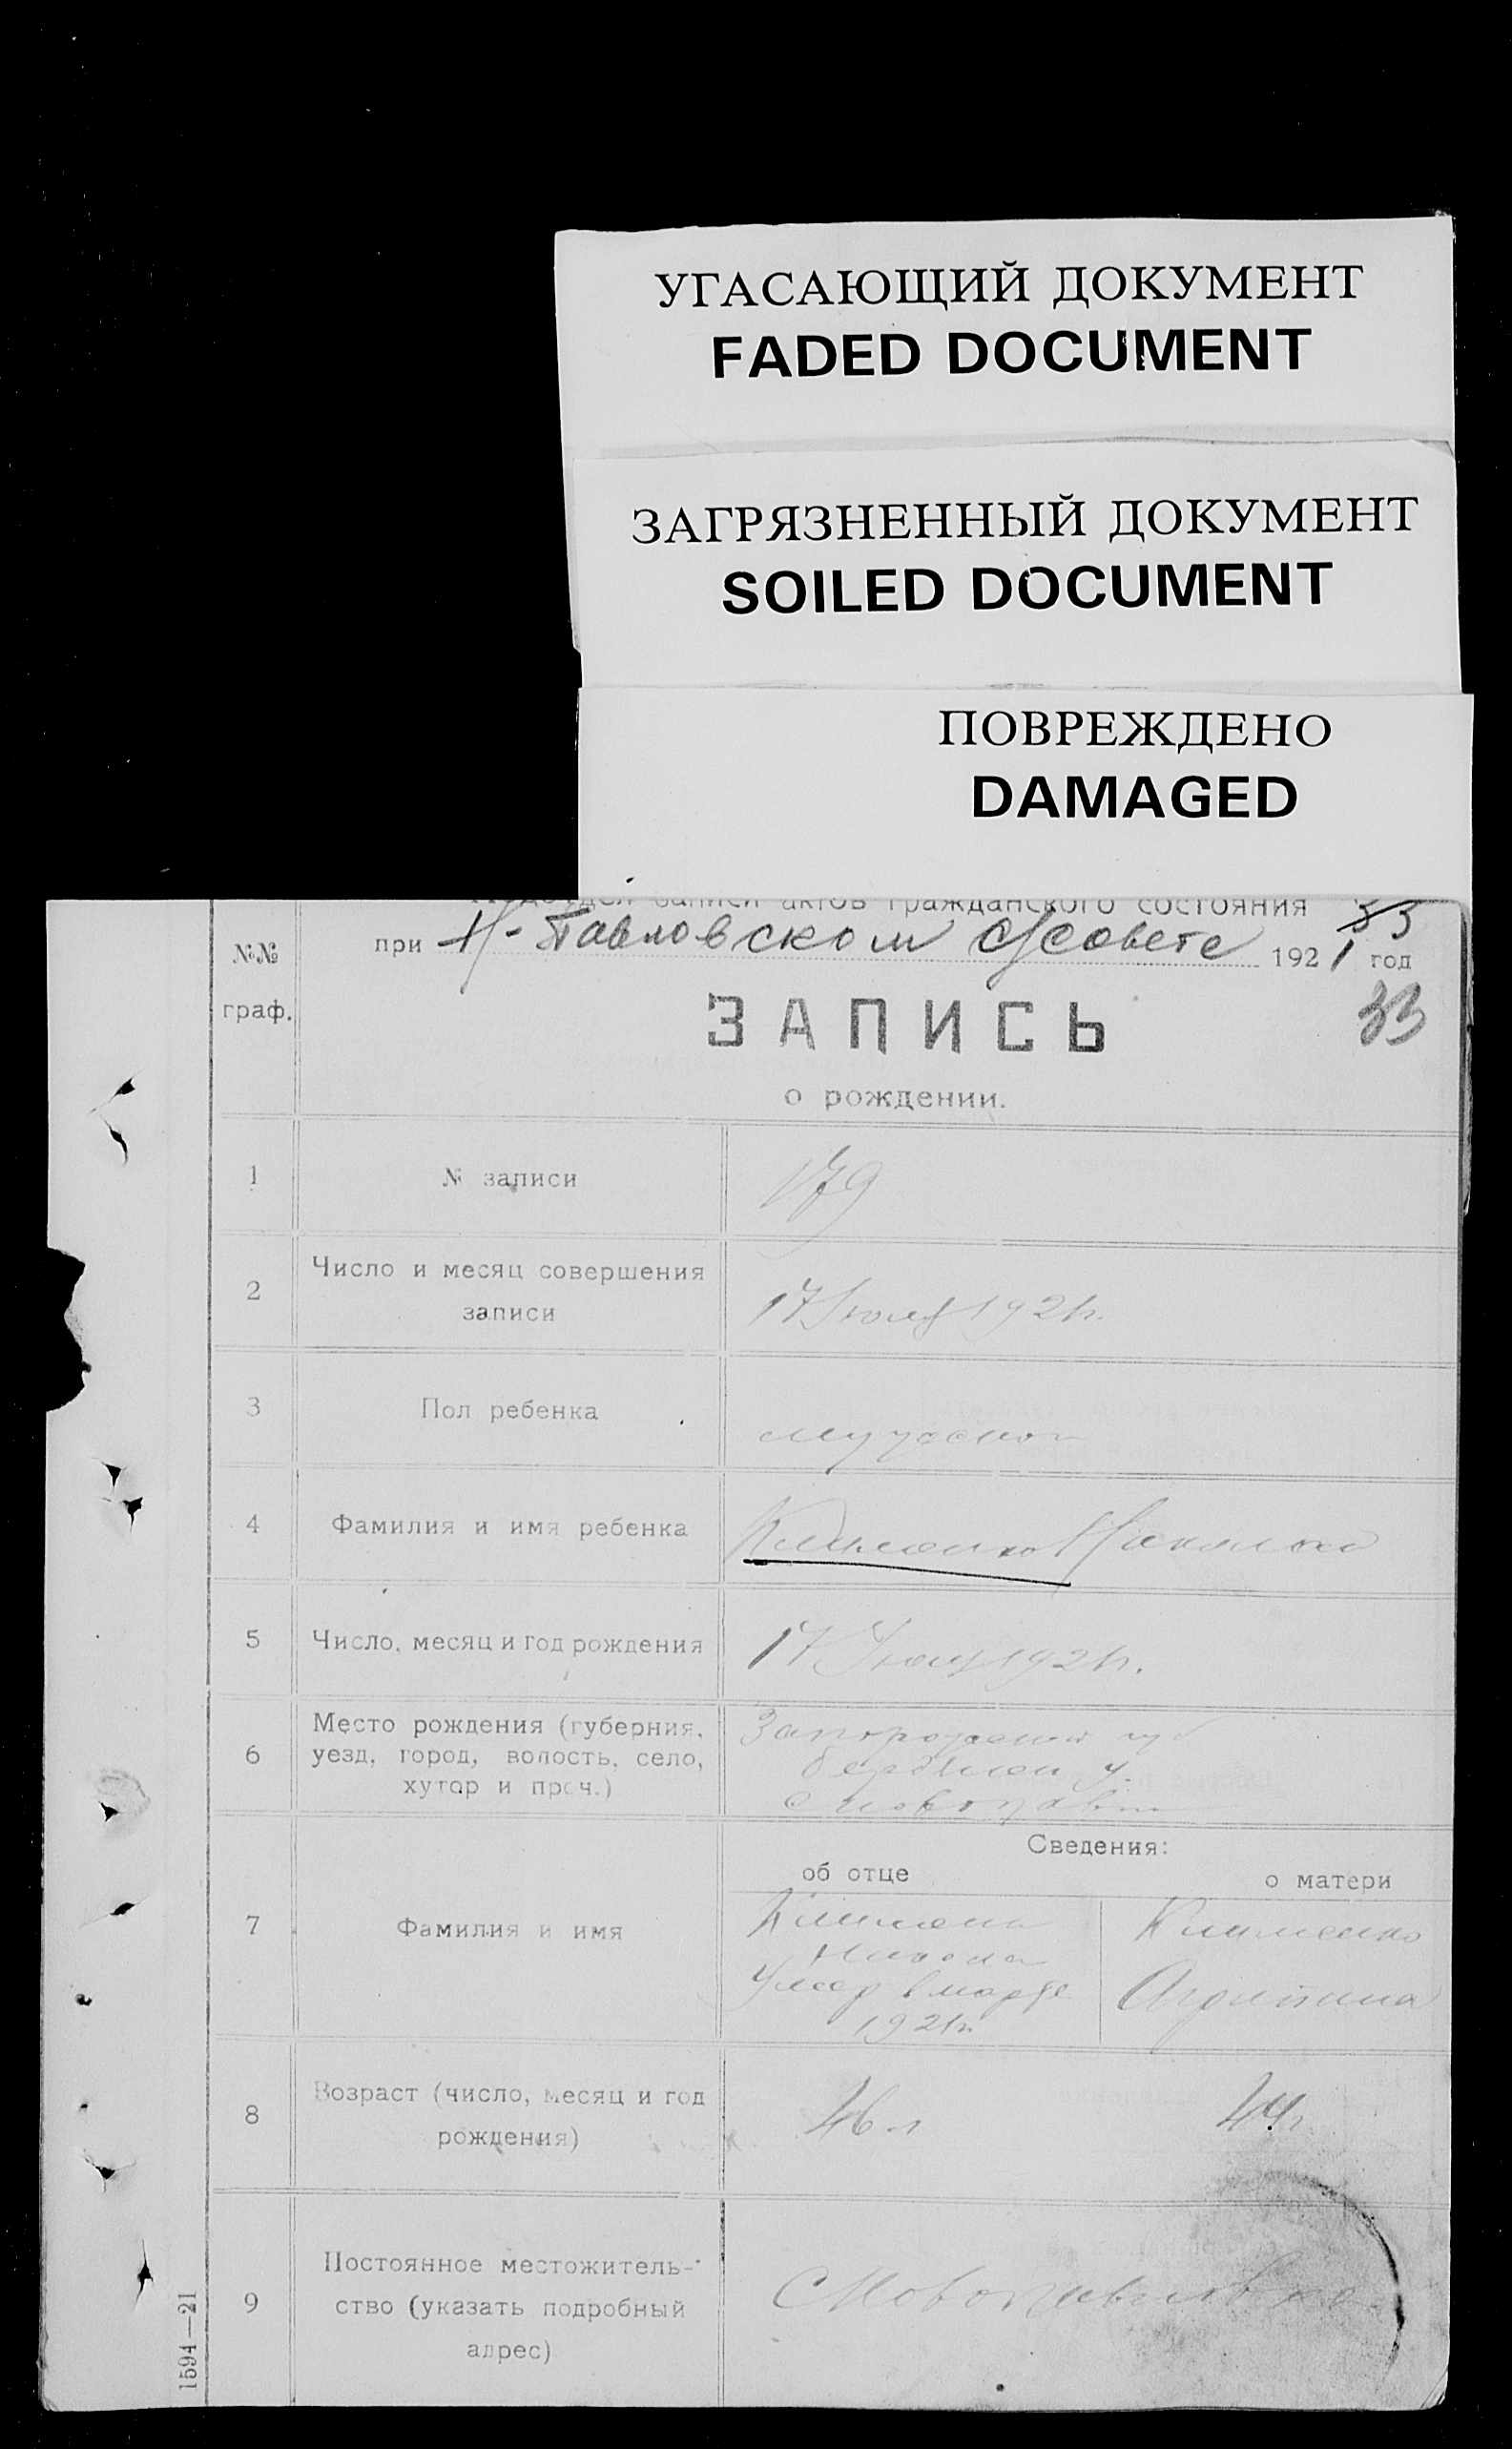 УГАСАЮЩИЙ ДОКУМЕНТ
FADED DOCUMENT
ЗАГРЯЗНЕННЫЙ ДОКУМЕНТ
SOILED DOCUMENT
ПОВРЕЖДЕНО
DAMAGED
Подотдел записи актов гражданского состояния 33
при Н-Павловском с/совете 1921 год
№№
граф.
33
ЗАПИСЬ
о рождении.
1 № записи 179
2 Число и месяц совершения
записи 17 Июля 1921г.
3 Пол ребенка мужской
4 Фамилия и имя ребенка Клименко
5 Число, месяц и год рождения 17 Июля 1921г.
6 Место рождения (губерния,
уезд, город, волость, село,
хутор и проч.)
Запорожской губ
Бердянск у.
с Новопавл
Сведения:
об отце о матери
7 Фамилия и имя
Клименко Клименко
Никола
Умер в марте
1921г.
8 Возраст (число, месяц и год
рождения) 46 л 44 л
9 Постоянное местожитель-
ство (указать подробный
адрес)
С Новопавловка
1594—21